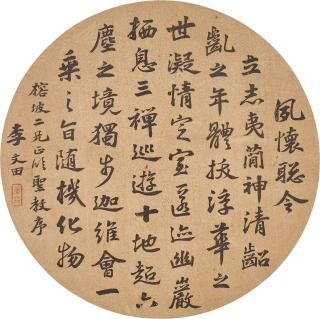 夙懷聰令
立志夷簡神清齠
齔之年體拔浮華之
世凝情定室匿迹幽巖
栖息三禪巡遊十地超六
塵之境獨步迦維會一
乘之旨隨機化物
榕坡二兄正臨聖教序
李文田